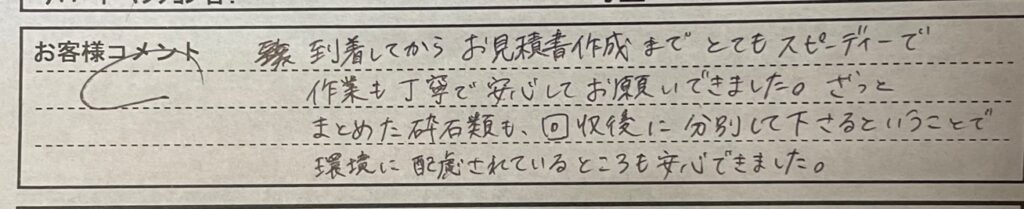 お客様コメント 到着してから お見積書作成 まで とても スピーディーで
作業も 丁寧で 安心して お願いできました。 ざっと
まとめた 砕石類も、回収後に 分別して下さるということで
環境に 配慮されているところも 安心できました。